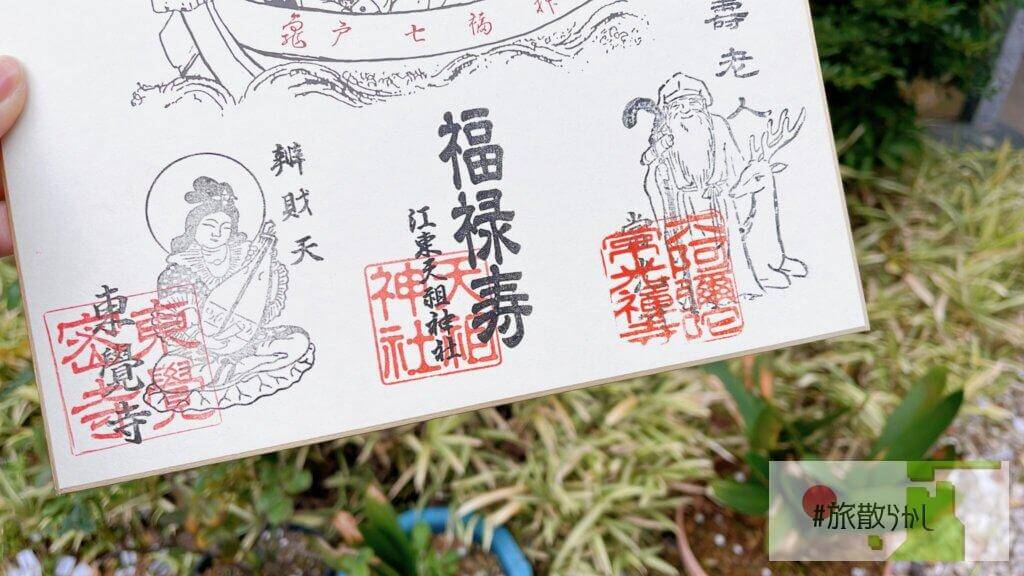 亀戸七福神
壽老人
福禄寿
江東天祖神社
天祖
神社
辨財天
東覺寺
東覺
密寺
常光禪寺
#旅散らかし